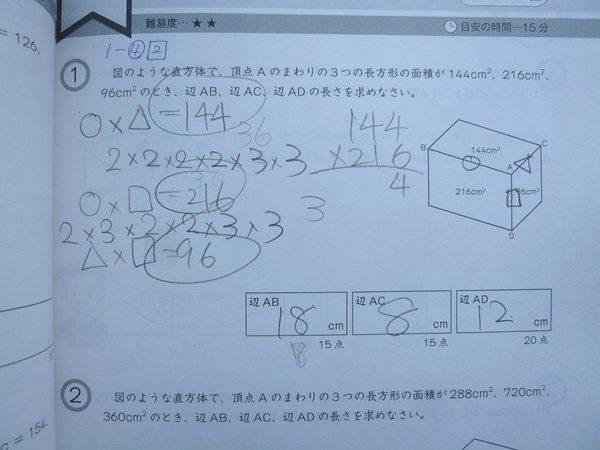 = 126.
難易度…★★
目安の時間…15分
1-④2
1 図のような直方体で、頂点Aのまわりの3つの長方形の面積が144cm²、216cm²、
96cm²のとき、辺AB、辺AC、辺ADの長さを求めなさい。
○×△=144
36
2×2×2×2×3×3
○×□=216
2×3×2×2×3×3
△×□=96
144
×216
4
3
B
C
144cm²
A
216cm²
96cm²
D
辺AB 18 cm
辺AC 8 cm
辺AD 12 cm
15点
15点
20点
2 図のような直方体で、頂点Aのまわりの3つの長方形の面積が288cm²、720cm²、
360cm²のとき、辺AB、辺AC、辺ADの長さを求めなさい。
= 154.